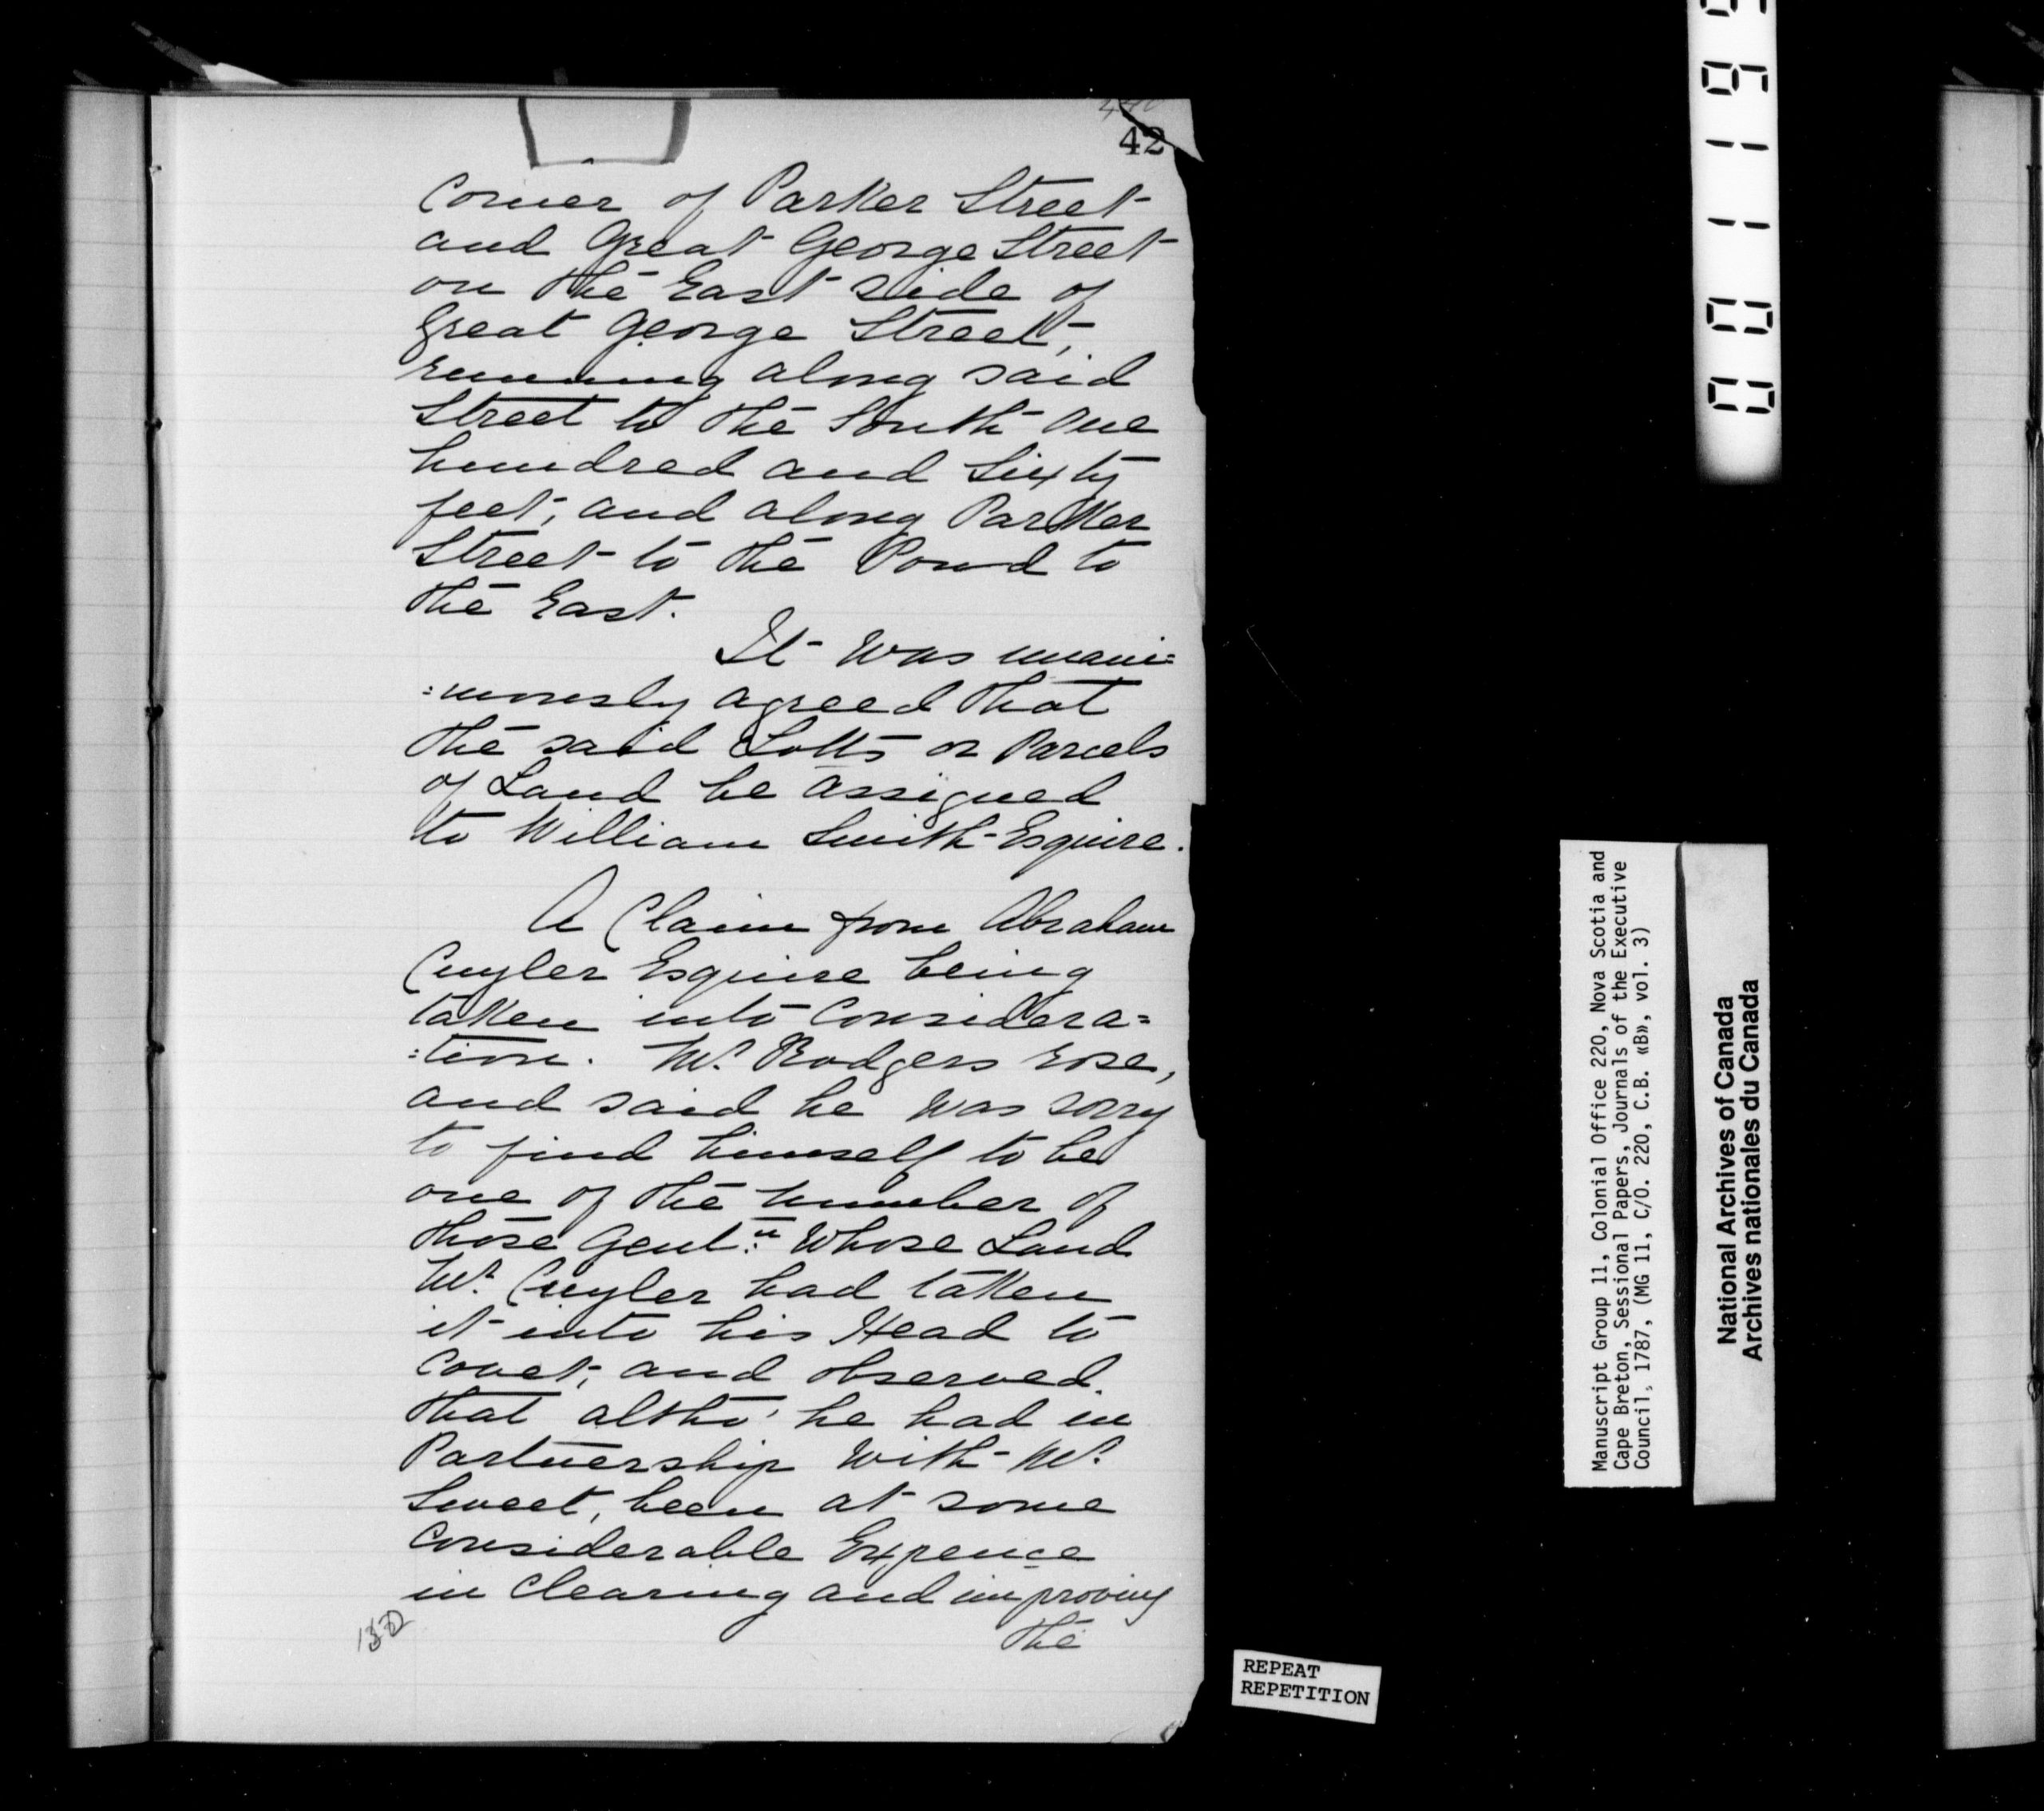 42
Corner of Parker Street
and Great George Street
on the East side of
Great George Street,
running along said
Street to the South one
hundred and Sixty
feet, and along Parker
Street to the Pond to
the East.
It was unani=
=mously agreed that
the said Lotts or Parcels
of Land be assigned
to William Smith Esquire.
A Claim from Abraham
Cuyler Esquire being
taken into Considera=
=tion. Mr. Rodgers rose,
and said he was sorry
to find himself to be
one of the number of
those Gentn. Whose Land
Mr. Cuyler had taken
it into his Head to
covet, and observed
that altho' he had in
Partnership with Mr.
Sweet, been at some
Considerable Expence
in clearing and improving
the
Manuscript Group 11, Colonial Office 220, Nova Scotia and
Cape Breton, Sessional Papers, Journals of the Executive
Council, 1787, (MG 11, C/O. 220, C.B. «B», vol. 3)
National Archives of Canada
Archives nationales du Canada
REPEAT
REPETITION